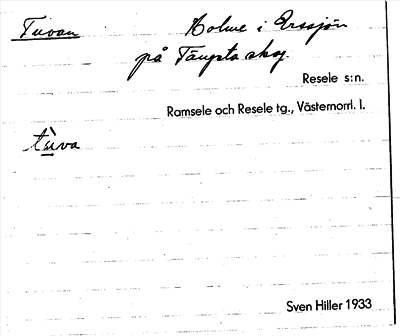 Tuvan Holme i Orssjön
på Tängsta skog.
Resele s:n.
Ramsele och Resele tg., Västernorrl. l.
tùva
Sven Hiller 1933